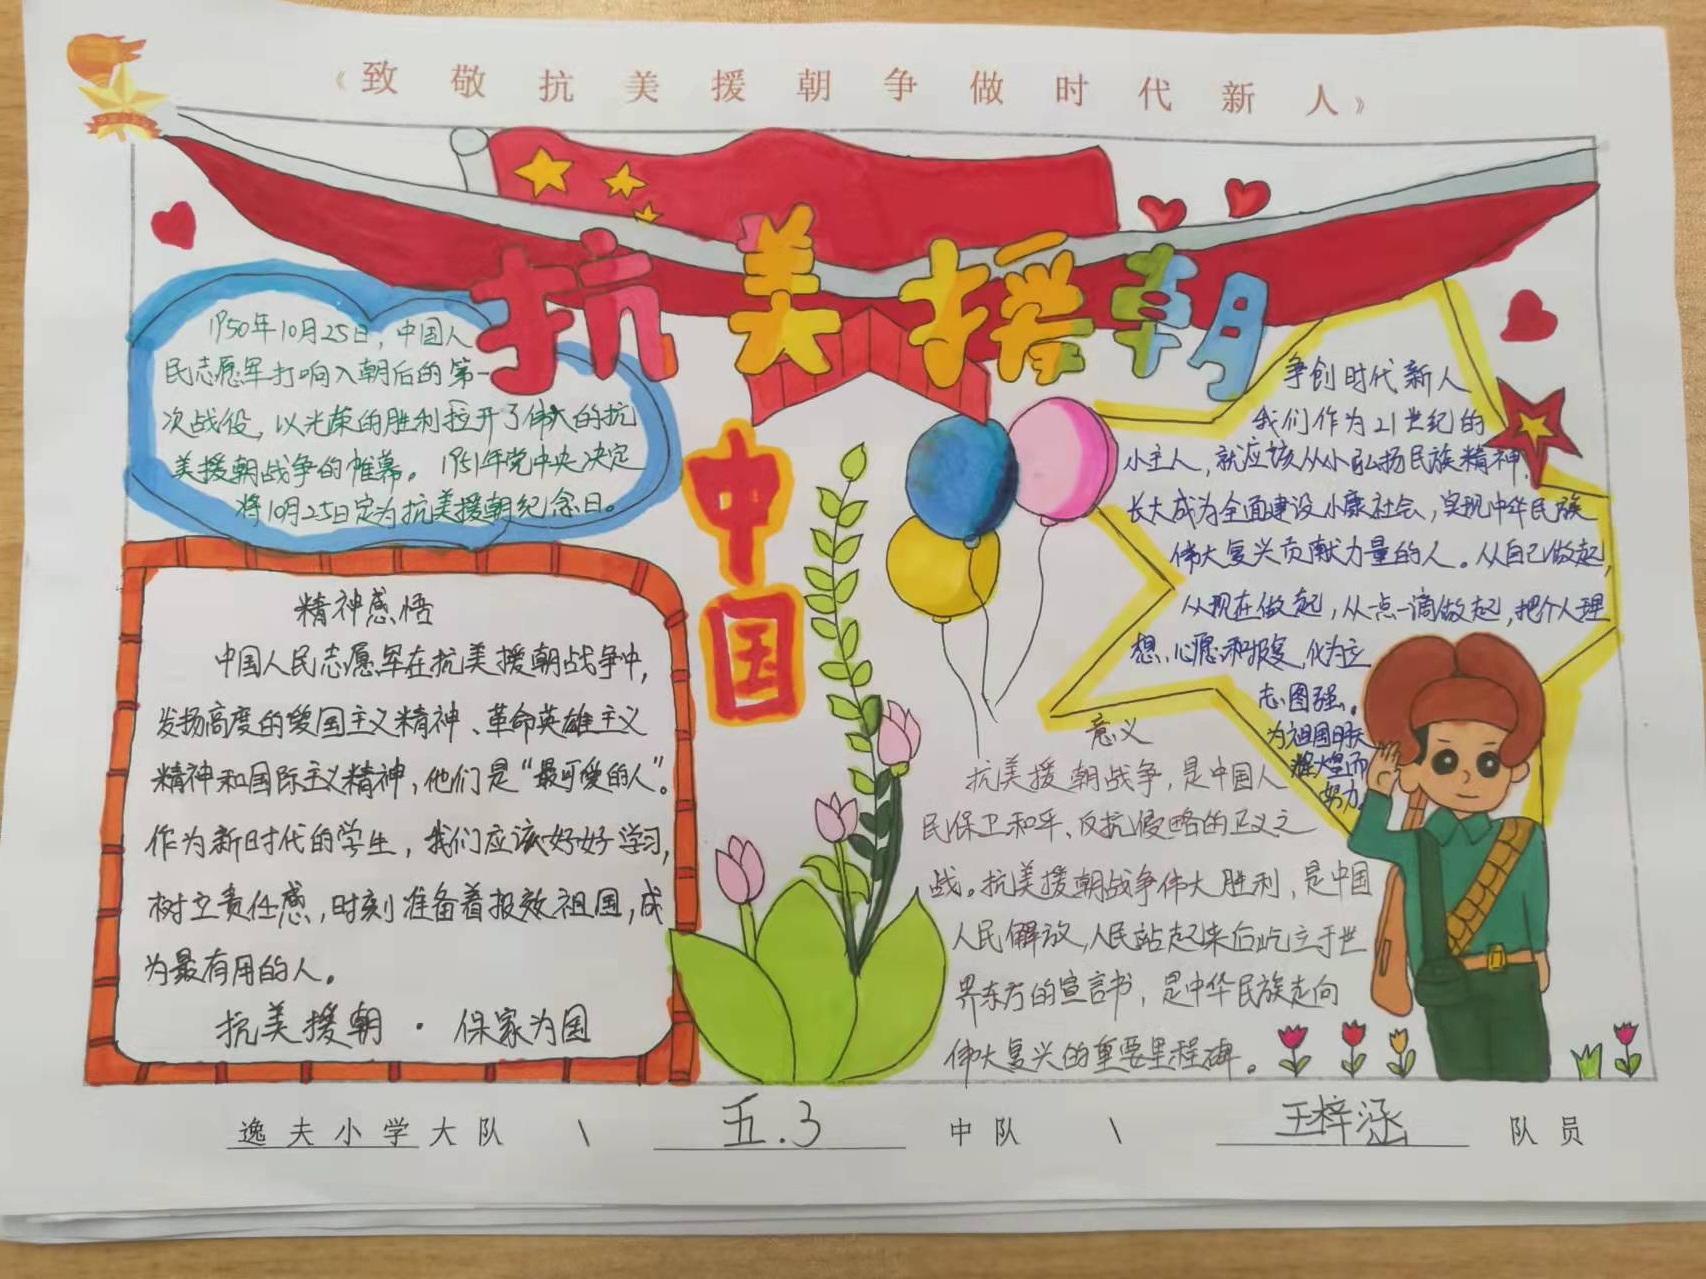 《致敬抗美援朝争做时代新人》
抗美援朝
中国
1950年10月25日,中国人
民志愿军打响入朝后的第一
次战役,以光荣的胜利拉开了伟大的抗
美援朝战争的帷幕。1951年党中央决定
将10月25日定为抗美援朝纪念日。
精神感悟
中国人民志愿军在抗美援朝战争中,
发扬高度的爱国主义精神、革命英雄主义
精神和国际主义精神,他们是“最可爱的人”。
作为新时代的学生,我们应该好好学习,
树立责任感,时刻准备着报效祖国,成
为最有用的人。
抗美援朝·保家为国
争创时代新人
我们作为21世纪的
小主人,就应该从小弘扬民族精神,
长大成为全面建设小康社会,实现中华民族
伟大复兴贡献力量的人。从自己做起,
从现在做起,从一点一滴做起,把个人理
想、心愿和报复,化为立
志图强。
为祖国明天
努力
意义
抗美援朝战争,是中国人
民保卫和平、反抗侵略的正义之
战。抗美援朝战争伟大胜利,是中国
人民解放,人民站起来后屹立于世
界东方的宣言书,是中华民族走向
伟大复兴的重要里程碑。
逸夫小学大队 \ 五.3 中队 \ 王梓涵 队员